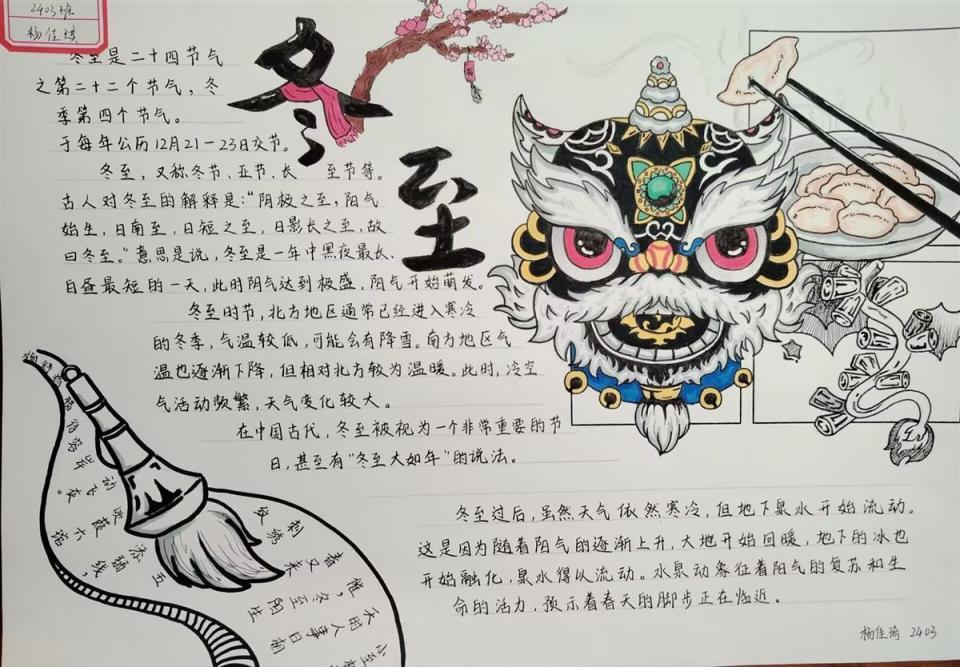 2403班
杨佳琪
冬至
冬至是二十四节气
之第二十二个节气，冬
季第四个节气。
于每年公历12月21－23日交节。
冬至，又称冬节、亚节、长 至节等。
古人对冬至的解释是：“阴极之至，阳气
始生，日南至，日短之至，日影长之至，故
曰冬至。”意思是说，冬至是一年中黑夜最长、
白昼最短的一天，此时阴气达到极盛，阳气开始萌发。
冬至时节，北方地区通常已经进入寒冷
的冬季，气温较低，可能会有降雪。南方地区气
温也逐渐下降，但相对北方较为温暖。此时，冷空
气活动频繁，天气变化较大。
在中国古代，冬至被视为一个非常重要的节
日，甚至有“冬至大如年”的说法。
冬至过后，虽然天气依然寒冷，但地下泉水开始流动。
这是因为随着阳气的逐渐上升，大地开始回暖，地下的冰也
开始融化，泉水得以流动。水泉动象征着阳气的复苏和生
命的活力，预示着春天的脚步正在临近。
小至
天时人事日相
催，冬至阳生
春又来
刺绣
五
添弱线
吹葭六琯
动飞灰。
岸容待
杨佳琦 2403